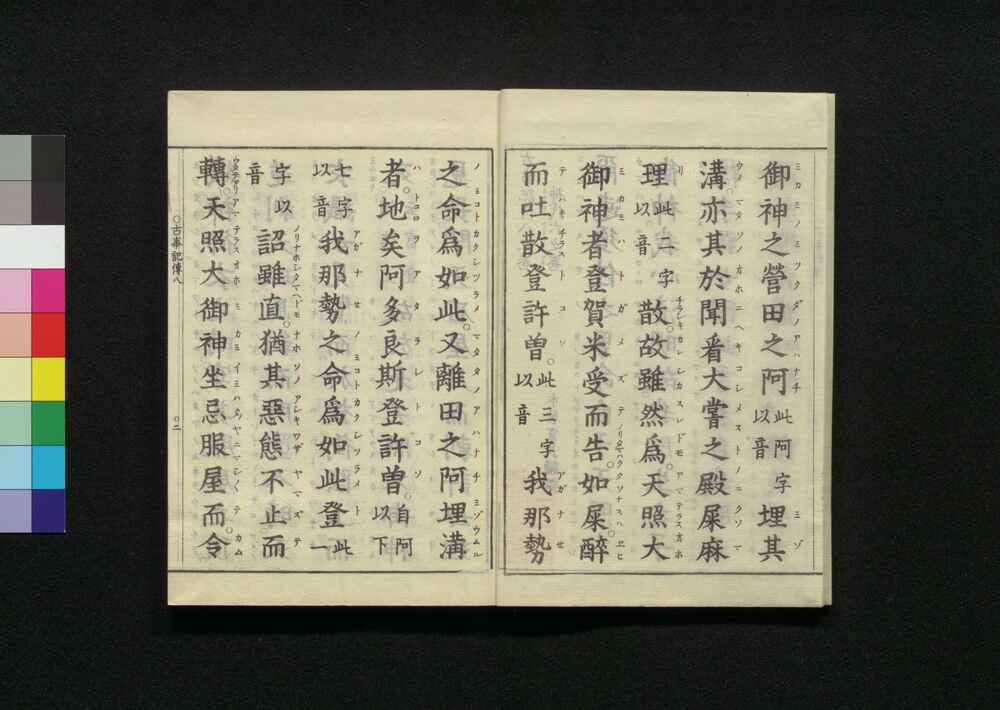 御神之營田之阿此阿字以音埋其
溝亦其於聞看大嘗之殿屎麻
理此二字以音散故雖然爲天照大
御神者登賀米受而告如屎醉
而吐散登許曾此三字以音我那勢
之命爲如此又離田之阿埋溝
者地矣阿多良斯登許曾自阿以下
七字以音我那勢之命爲如此登此一
字以音詔雖直猶其惡態不止而
轉天照大御神坐忌服屋而令
○古事記傳八
○二